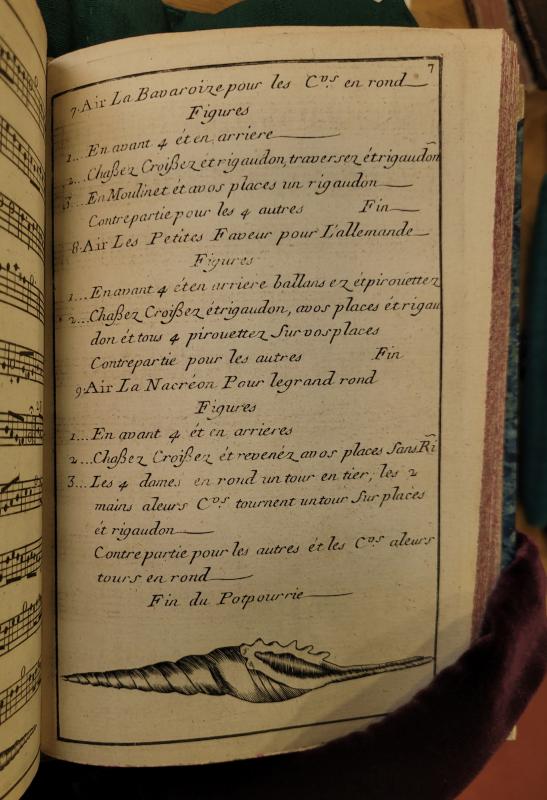 7
7. Air La Bavaroize pour les C.vs en rond
Figures
1... En avant 4 ét en arriere
2... Chaßez Croißez ét rigaudon, traversez ét rigaudon
3... En Moulinet ét avos places un rigaudon
Contrepartie pour les 4 autres Fin
8. Air Les Petites Faveur pour L'allemande
Figures
1... En avant 4 ét en arriere ballans ez ét pirouettez
2... Chaßez Croißez ét rigaudon, avos places ét rigau
don ét tous 4 pirouettez Sur vos places
Contrepartie pour les autres Fin
9. Air La Nacréon Pour le grand rond
Figures
1... En avant 4 ét en arrieres
2... Chaßez Croißez ét revenez avos places Sans Ri
3... Les 4 dames en rond un tour en tier, les 2
mains aleurs C.vs tournent un tour Sur places
ét rigaudon
Contre partie pour les autres ét les C.vs aleurs
tours en rond
Fin du Potpourrie